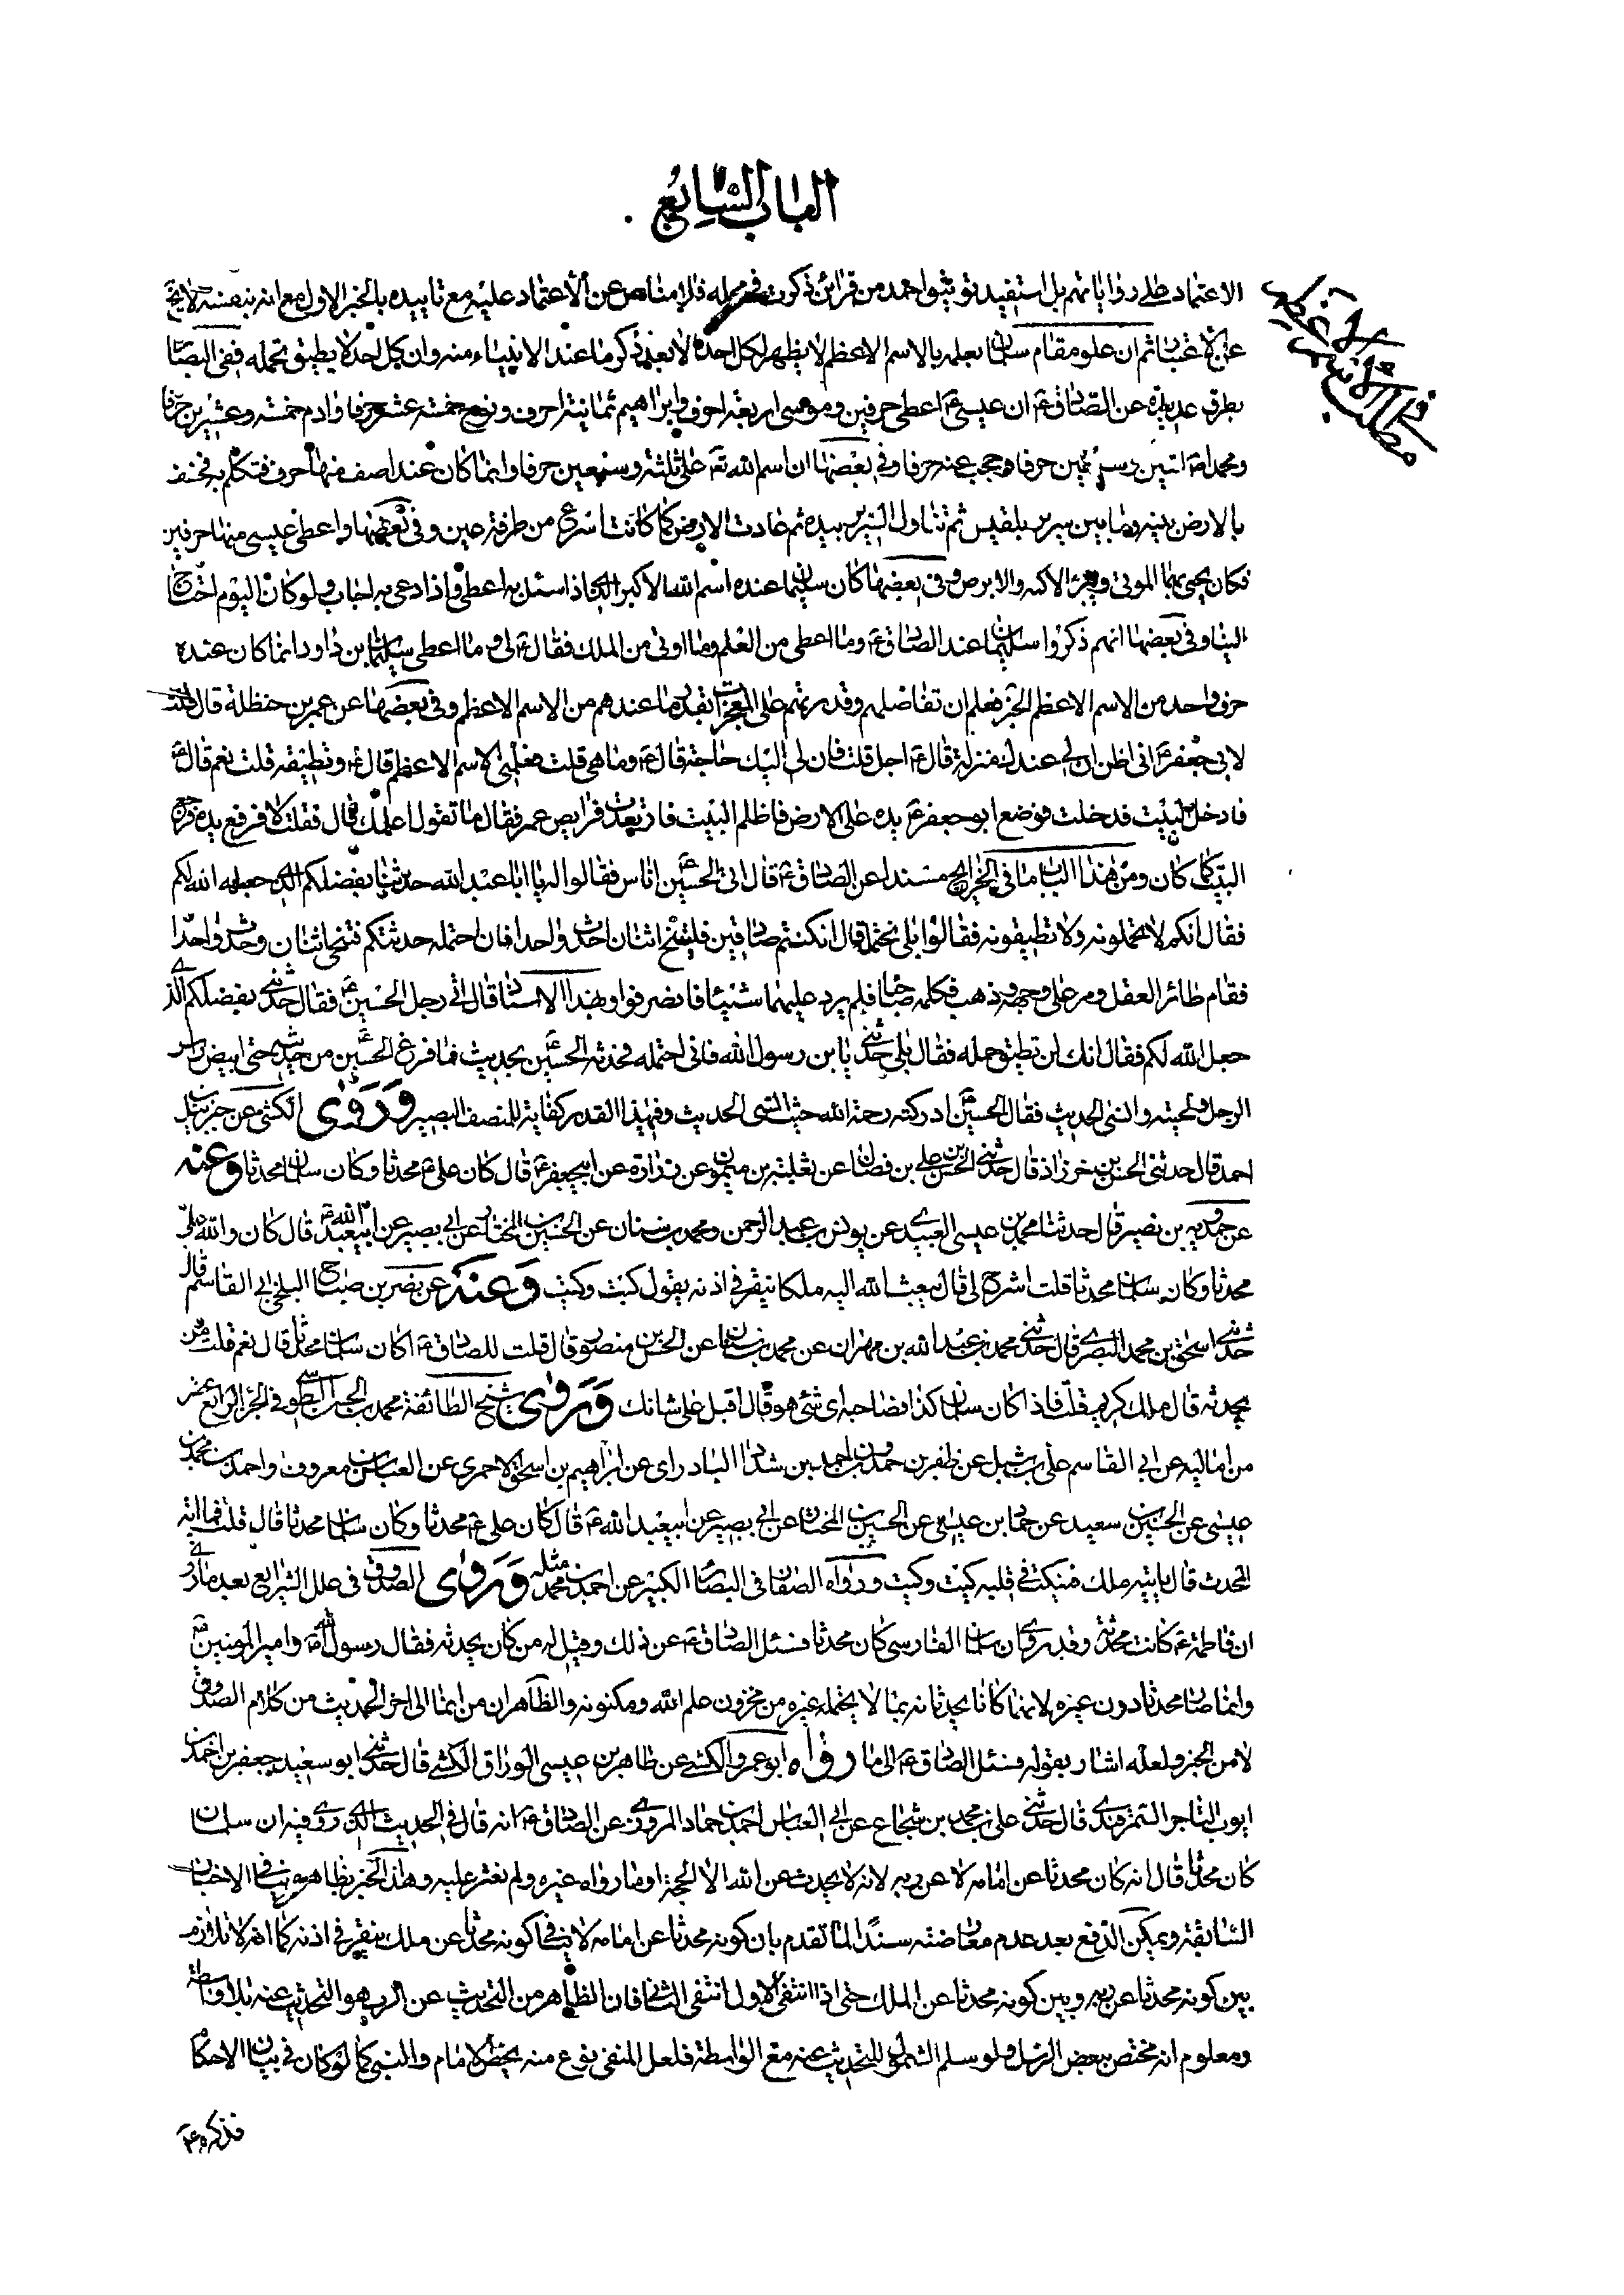 الباب السابع
الاعتماد على رواياتهم بل استفيد توثيق احمد من قرائن ذكرت في محله فلا مناص عن الاعتماد عليه مع تاييده بالخبر الاول مع انه بنفسه لا يخ
عن الاعتبار ثم ان علو مقام سلمان بعلمه بالاسم الاعظم لا يظهر لكل احد الا بعد ذكر ما عند الانبياء منه وان كل احد لا يطيق تحمله ففي البصائر
بطرق عديدة عن الصادق ع ان عيسى ع اعطى حرفين وموسى اربعة احرف وابراهيم ثمانية احرف ونوح خمسة عشر حرفا وادم خمسة وعشرين حرفا
ومحمد ص اثنين وسبعين حرفا وحجب عنه حرفا وفي بعضها ان اسم الله تع على ثلثة وسبعين حرفا وانما كان عند اصف منها حرف فتكلم به فخسف
بالارض بينه وما بين سرير بلقيس ثم تناول السرير بيده ثم عادت الارض كما كانت اسرع من طرفة عين وفي بعضها واعطى عيسى منها حرفين
فكان يحيى بهما الموتى ويبرئ الاكمه والابرص وفي بعضها كان سليمان عنده اسم الله الاكبر الذي اذا سئل به اعطى واذا دعى به اجاب ولو كان اليوم احتاج
الينا وفي بعضها انهم ذكروا سليمان عند الصادق ع وما اعطى من العلم وما اوتي من الملك فقال ع لي وما اعطى سليمان بن داود انما كان عنده
حرف واحد من الاسم الاعظم الخبر فعلم ان تفاضلهم وقدرتهم على المعجزات بقدر ما عندهم من الاسم الاعظم وفي بعضها عن عمر بن حنظلة قال قلت
لابي جعفر ع اني اظن ان لي عندك منزلة قال ع اجل قلت فان لي اليك حاجة قال ع وما هي قلت تعلمني الاسم الاعظم قال ع وتطيقه قلت نعم قال ع
فادخل البيت فدخلت فوضع ابو جعفر ع يده على الارض فاظلم البيت فارتعدت فرايص عمر فقال ما تقول اعلمك قال فقلت لا فرفع يده فرجع
البيت كما كان ومن هذا الباب ما في الخرايج مسندا عن الصادق ع قال اتى الحسين ع اناس فقالوا له يا ابا عبد الله حدثنا بفضلكم الذي جعله الله لكم
فقال انكم لا تحملونه ولا تطيقونه فقالوا بلى نحتمل قال ان كنتم صادقين فليتنح اثنان احدث واحدا فان احتمله حدثتكم فتنحى اثنان وحدث واحدا
فقام طائر العقل ومر على وجهه وذهب فكلمه صاحباه فلم يرد عليهما شيئا فانصرفوا وبهذا الاسناد قال اتى رجل الحسين ع فقال حدثني بفضلكم الذي
جعل الله لكم فقال انك لن تطيق حمله فقال بلى حدثني يا بن رسول الله فاني احتمله فحدثه الحسين ع بحديث فما فرغ الحسين ع من حديثه حتى ابيض راس
الرجل ولحيته وانسى الحديث فقال الحسين ع ادركته رحمة الله حيث انسى الحديث وفي هذا القدر كفاية للمنصف البصير وروى الكشي عن جبرئيل بن
احمد قال حدثني الحسن بن خرزاذ قال حدثني الحسن بن علي بن فضال عن ثعلبة بن ميمون عن زرارة عن ابي جعفر ع قال كان علي ع محدثا وكان سلمان محدثا وعنه
عن حمدويه بن نصير قال حدثنا محمد بن عيسى العبيدي عن يونس بن عبد الرحمن ومحمد بن سنان عن الحسين بن المختار عن ابي بصير عن ابي عبد الله ع قال كان والله علي
محدثا وكان سلمان محدثا قلت اشرح لي قال يبعث الله اليه ملكا ينقر في اذنه يقول كيت وكيت وعنه عن نصر بن صباح البلخي ابي القاسم قال
حدثني اسحق بن محمد البصري قال حدثني محمد بن عبد الله بن مهران عن محمد بن سنان عن الحسن بن منصور قال قلت للصادق ع اكان سلمان محدثا قال نعم قلت من
يحدثه قال ملك كريم قلت فاذا كان سلمان كذا فصاحبه اي شئ هو قال اقبل على شانك وروى شيخ الطائفة محمد بن الحسن الطوسي في الجزء الرابع عشر
من اماليه عن ابي القاسم علي بن شبل عن ظفر بن حمدون بن احمد بن شداد البادرائي عن ابراهيم بن اسحق الاحمري عن العباس بن معروف واحمد بن محمد بن
عيسى عن الحسين بن سعيد عن حماد بن عيسى عن الحسين بن المختار عن ابي بصير عن ابي عبد الله ع قال كان علي ع محدثا وكان سلمان محدثا قال قلت فما اية
المحدث قال ياتيه ملك فينكت في قلبه كيت وكيت ورواه الصفار في البصائر الكبير عن احمد بن محمد مثله وروى الصدوق في علل الشرايع بعد ما روى
ان فاطمة ع كانت محدثة وقد روى ان سلمان الفارسي كان محدثا فسئل الصادق ع عن ذلك وقيل له من كان يحدثه فقال رسول الله ص وامير المومنين ع
وانما صار محدثا دون غيره لانهما كانا يحدثانه بما لا يحتمله غيره من مخزون علم الله ومكنونه والظاهر ان من انما الى اخر الحديث من كلام الصدوق
لا من الخبر ولعله اشار بقوله فسئل الصادق ع الى ما رواه ابو عمرو الكشي عن طاهر بن عيسى الوراق الكشي قال حدثني ابو سعيد جعفر بن احمد بن
ايوب التاجر السمرقندي قال حدثني علي بن محمد بن شجاع عن ابي العباس احمد بن حماد المروزي عن الصادق ع انه قال في الحديث الذي روى فيه ان سلمان
كان محدثا قال انه كان محدثا عن امامه لا عن ربه لانه لا يحدث عن الله الا الحجة او ما رواه غيره ولم نعثر عليه وهذا الخبر بظاهره ينافي الاخبار
السابقة ويمكن الدفع بعد عدم معارضته سندا لما تقدم بان كونه محدثا عن امامه لا ينافي كونه محدثا عن ملك ينقر في اذنه كما انه لا تلازم
بين كونه محدثا عن ربه وبين كونه محدثا عن الملك حتى اذا انتفى الاول انتفى الثاني فان الظاهر من التحديث عن الرب هو التحديث عنه بلا واسطة
ومعلوم انه مختص ببعض الرسل ولو سلم الشمول للتحديث عنه مع الواسطة فلعل المنفي نوع منه يختص الامام والنبي كما لو كان في بيان الاحكام